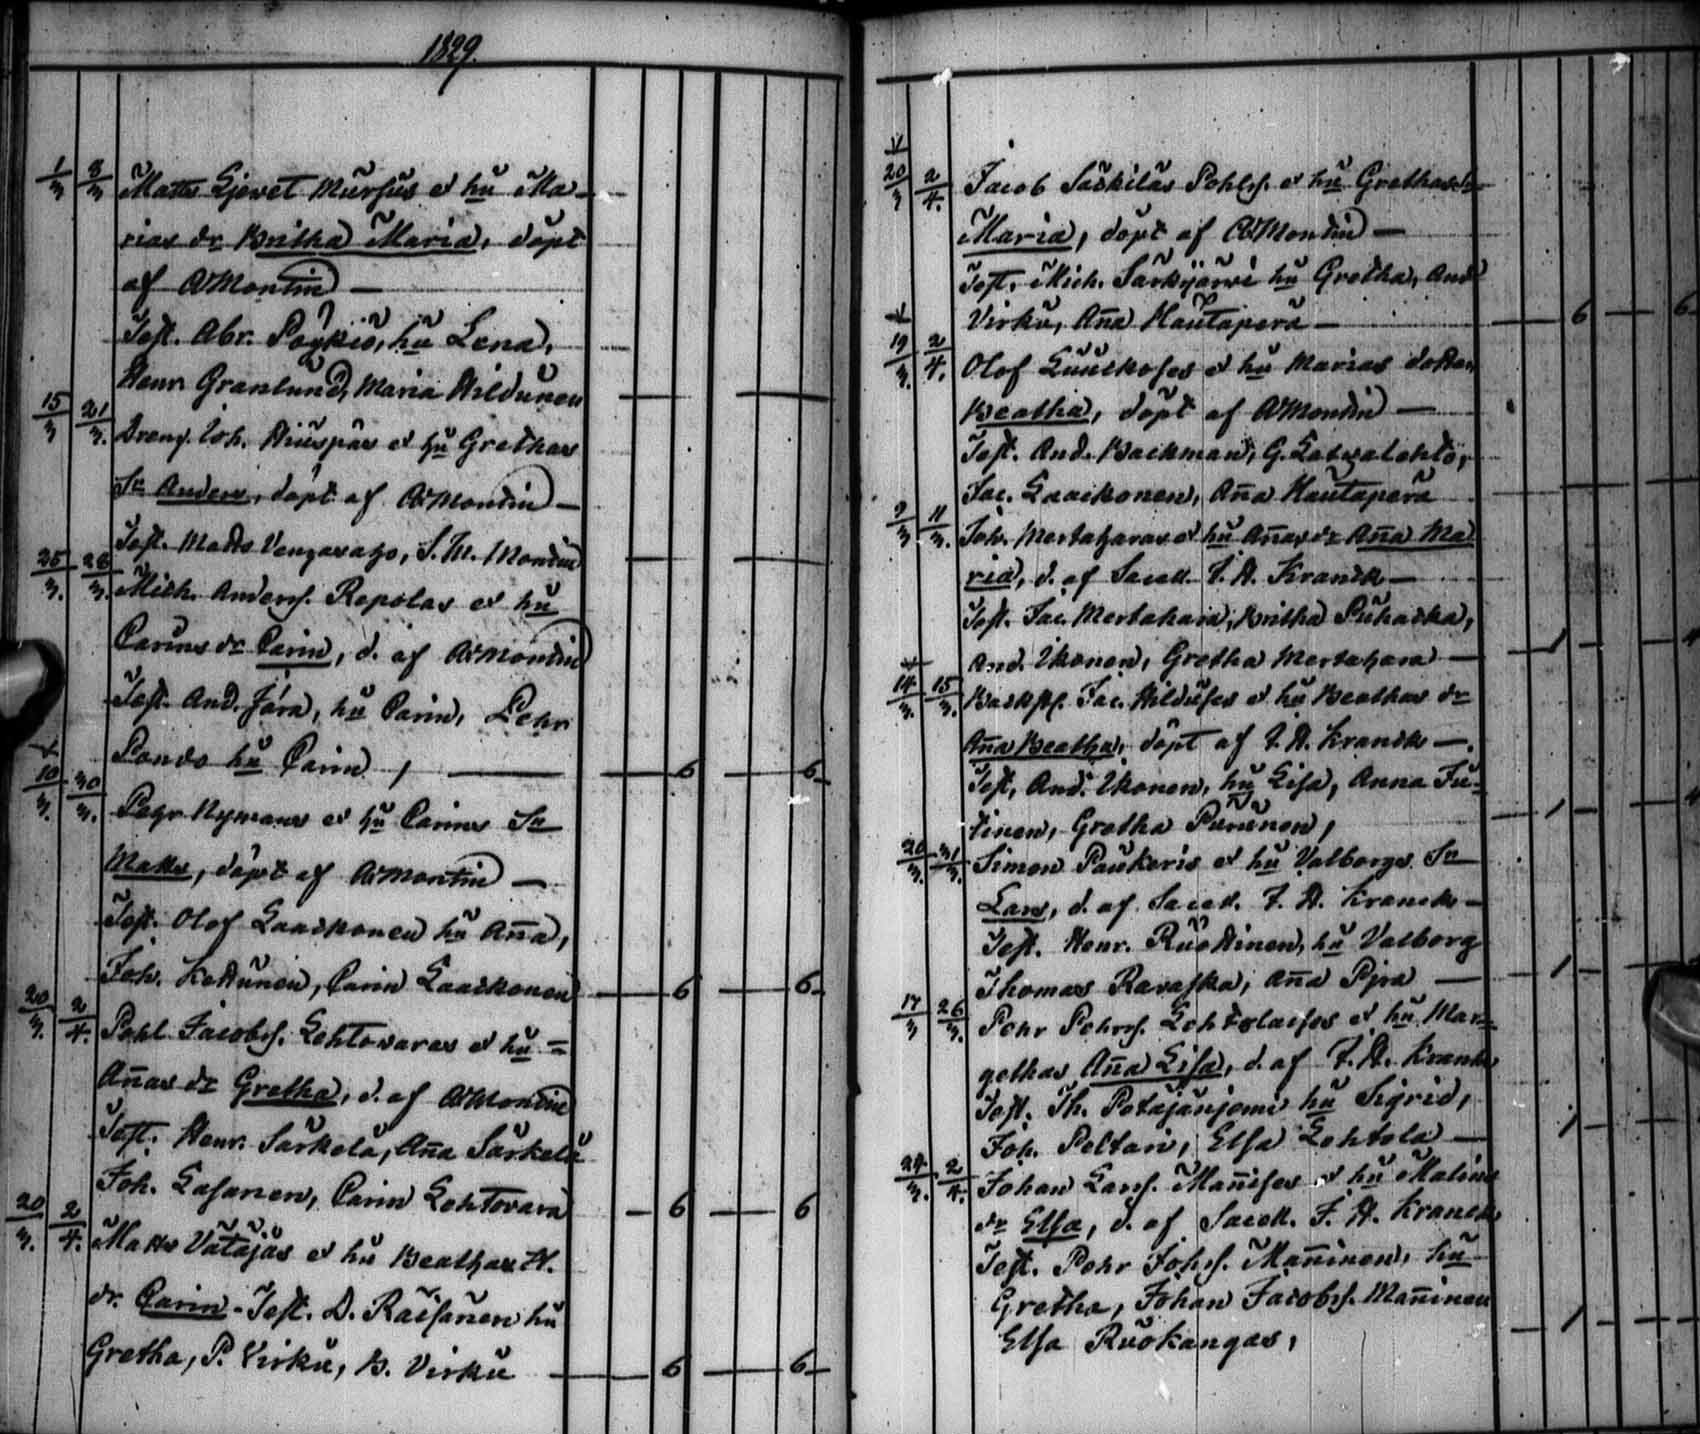 1829.
1/3 8/3 Matts Gjevet Mursus et hu Ma-
rias dr Britha Maria, döpt
af A: Montin —
Test. Abr. Pöykiö, hu Lena,
Henr. Granlund, Maria Hildunen
15/3 21/3 Dreng. Joh. Hiuspäs et hu Grethas
Sn Anders, döpt af A: Montin —
Test. Matts Vengasaho, S. M. Montin
25/3 28/3 Mich. Anderss. Repolas et hu
Carins dr Carin, d. af A: Montin
Test. And. Jära, hu Carin, Pehr
Pando hu Carin, — 6 — 6
10/3 30/3 Pehr Nymans et hu Carins Sn
Matts, döpt af A: Montin —
Test. Olof Laackonen hu Aña,
Joh. Kettunen, Carin Laackonen — 6 — 6
20/3 2/4 Pohl Jacobss. Lehtovaras et hu
Añas dr Gretha, d. af A: Montin
Test. Henr. Särkelä, Aña Särkelä
Joh. Lasanen, Carin Lehtovara — 6 — 6
20/3 2/4 Matts Vätäjäs et hu Beathas H.
dr. Carin - Test. D. Räisänen hu
Gretha, P. Virku, B. Virku — 6 — 6
20/3 2/4 Jacob Säskiläs Pohlss. et hu Grethas dr
Maria, döpt af A: Montin —
Test. Mich. Särkijärvi hu Gretha, And
Virku, Aña Hautaperä — 6 — 6
19/3 2/4 Olof Luuckoses et hu Marias dotter
Beatha, döpt af A: Montin —
Test. And. Backman, G. Latvalehto,
Jac. Laackonen, Aña Hautaperä
9/3 11/3 Joh. Mertaharas et hu Añas dr Aña Ma
ria, d. af Sacell. F. H. Kranck —
Test. Jac. Mertahara, Britha Puhacka,
And. Ikonen, Gretha Mertahara — 1
14/3 15/3 Backst. Jac. Hilduses et hu Beathas dr
Aña Beatha, döpt af F. H. Kranck —
Test. And. Ikonen, hu Lisa, Anna Ju-
tinen, Gretha Parunen, — 1
20/3 31/3 Simon Paukeris et hu Valborgs Sn
Lars, d. af Sacell. F. H. Kranck —
Test. Henr. Ruottinen, hu Valborg
Thomas Ravaska, Aña Pjra — 1
17/3 26/3 Pehr Pehrss. Lehtolaises et hu Mar-
gethas Aña Lisa, d. af F. H. Kranck
Test. Th. Petäjäniemi hu Sigrid,
Joh. Peltari, Elsa Lehtola — 1
24/3 2/4 Johan Larss. Mañises et hu Malins
dr Elsa, d. af Sacell. F. H. Kranck
Test. Pehr Johss. Mañinen, hu
Gretha, Johan Jacobss. Mañinen
Elsa Ruokangas, — 1